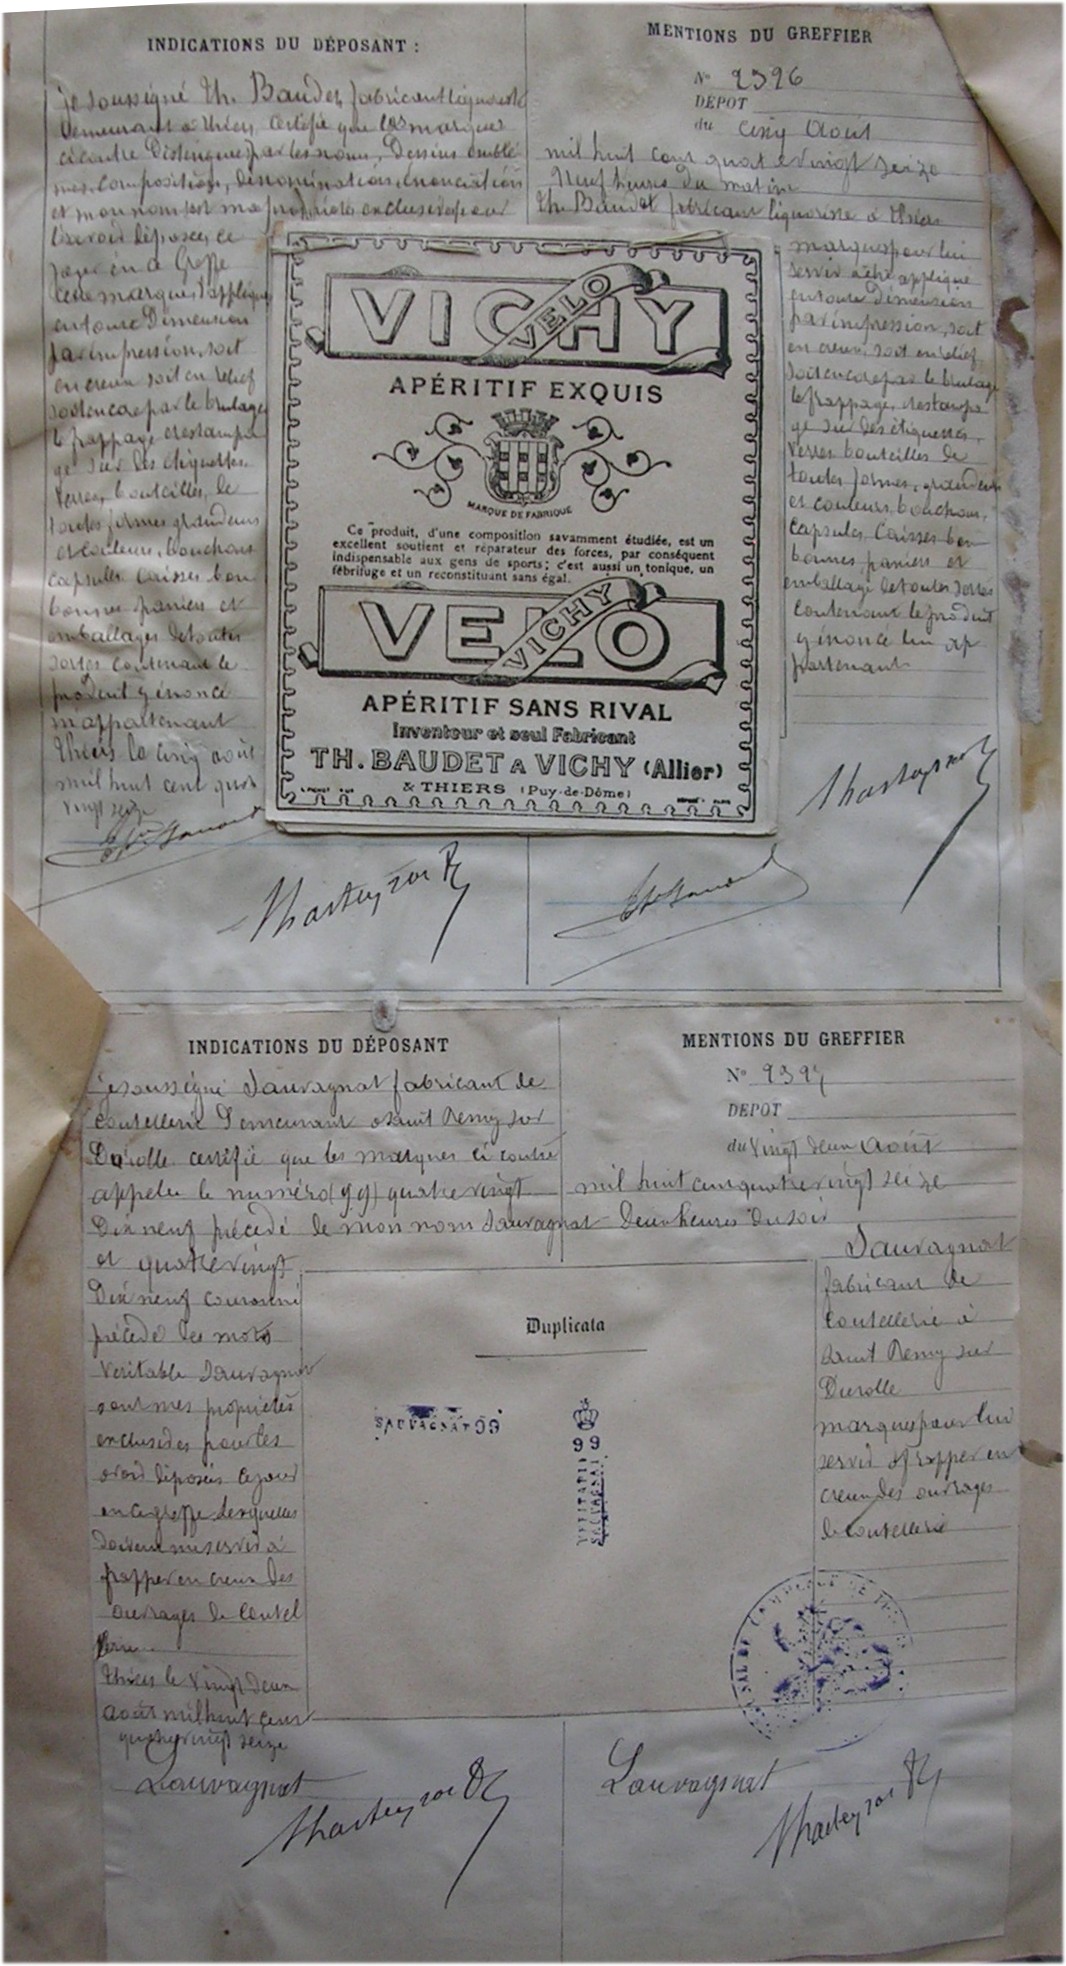 INDICATIONS DU DÉPOSANT :
je soussigné Th. Baudet, fabricant liquoriste
demeurant à Thiers, certifie que les marques
ci contre Distingues par les noms, Dessins emblè
mes, composition, dénominations, énonciations
et mon nom sont ma propriété exclusive pour
l'avoir déposée, ce
jour en ce Greffe
cette marque s'applique
en toute Dimension
par impression, soit
en creux soit en relief
soit encore par le brulage
le frappage estampa
ge sur des étiquettes,
Verres, bouteilles, de
toutes formes grandeurs
et couleurs, bouchons
capsules caisses bon
bonnes paniers et
emballages de toutes
sortes contenant le
produit y énoncé
m'appartenant
Thiers le cinq août
mil huit cent quatre
vingt seize
MENTIONS DU GREFFIER
N° 2396
DEPOT
du cinq Août
mil huit cent quatre vingt seize
Neuf heures du matin
Th. Baudet fabricant liquoriste à Thiers
marques pour lui
servir à être appliqué
en toute Dimension
par impression, soit
en creux, soit en relief
soit encore par le brulage
le frappage, estampa
ge sur des étiquettes,
Verres bouteilles de
toutes formes, grandeurs
et couleurs, bouchons,
capsules Caisses bon
bonnes paniers et
emballage de toutes sortes
contenant le produit
y énoncé lui ap
partenant
VICHY
VELO
APÉRITIF EXQUIS
MARQUE DE FABRIQUE
Ce produit, d'une composition savamment étudiée, est un
excellent soutient et réparateur des forces, par conséquent
indispensable aux gens de sports; c'est aussi un tonique, un
fébrifuge et un reconstituant sans égal.
VELO
VICHY
APÉRITIF SANS RIVAL
Inventeur et seul Fabricant
TH. BAUDET A VICHY (Allier)
& THIERS (Puy-de-Dôme)
INDICATIONS DU DÉPOSANT
je soussigné Sauvagnat fabricant de
coutellerie Demeurant à Saint Remy sur
Durolle certifie que les marques ci contre
appelée le numéro (99) quatre vingt
Dix neuf précédé de mon nom Sauvagnat
et quatre vingt
Dix neuf couronné
précédé des mots
Veritable Sauvagnat
sont mes propriétés
exclusives pour les
avoir déposées ce jour
en ce greffe lesquelles
doivent me servir à
frapper en creux des
ouvrages de coutel
lerie
Thiers le vingt deux
août mil huit cent
quatre vingt seize
Sauvagnat
MENTIONS DU GREFFIER
N° 2397
DEPOT
du Vingt deux Août
mil huit cent quatre vingt seize
Deux heures du soir
Sauvagnat
fabricant de
coutellerie à
Saint Remy sur
Durolle
marques pour lui
servir à frapper en
creux des ouvrages
de coutellerie
Duplicata
SAUVAGNAT 99
99
VERITABLE
SAUVAGNAT
Sauvagnat